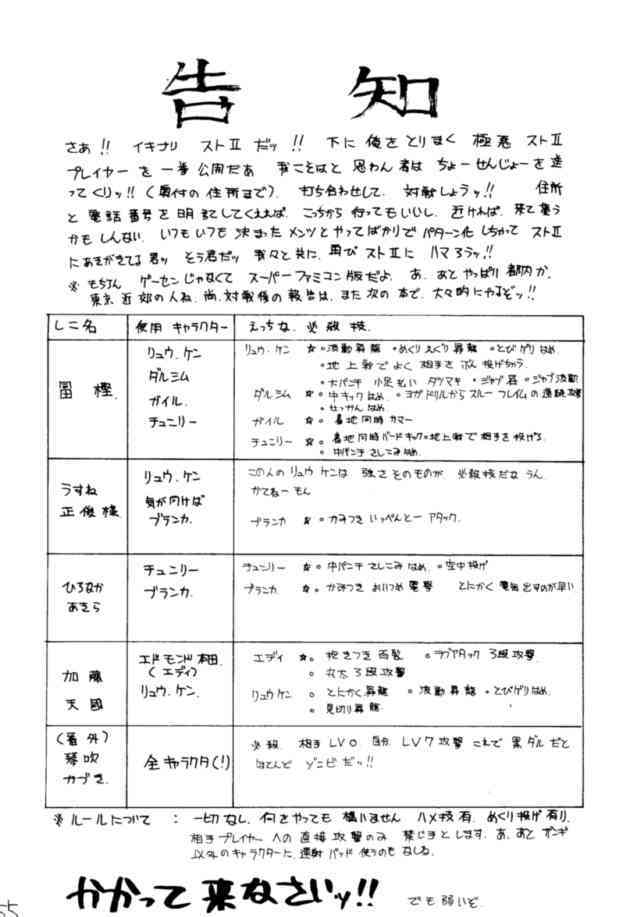 告知
さあ!! イキナリ ストⅡ だッ!! 下に 俺を とりまく 極悪 ストⅡ
プレイヤー を 一挙 公開だあ 我こそはと 思わん 者は ちょーせんじょー を 送
ってくりッ!! (奥付の 住所まで). 打ち合わせして、 対戦しょうッ!! 住所
と 電話 番号 を 明記してくえれば、こっちから 行ってもいいし、近ければ、来て貰う
かもしんない. いつも いつも 決まった メンツと やってばかりで パターン化 しちゃって ストⅡ
にあきがきてる 君ッ そう 君だッ 我々と共に、再び ストⅡに ハマろうッ!!
※ もちろん ゲーセンじゃなくて スーパーファミコン版だよ. あ、あと やっぱり 都内か、
東京 近郊の 人ね. 尚、対戦後の 報告は、また 次の 本で、大々的にやるぞッ!!
しこ名 使用 キャラクター えっちな、必殺技.
リュウ.ケン
ダルシム
ガイル.
チュンリー
リュウ.ケン ☆。波動昇龍 。めくり えぐり 昇龍 。とびゲリ はめ.
。地上戦で よく 相手を ぶん投げちゃう.
。大パンチ 小足払い タツマキ 。ジャブ昇 。ジャブ波動
ダルシム ☆。中キックはめ. 。ヨガドリルから スルー フレイムの 連続攻撃
。せっかんはめ.
ガイル ☆。着地同時 カマー
チュンリー ☆。着地同時バードキック 。地上戦で 相手を 投げる.
。中パンチ さしこみ はめ.
うすね
正俊様
リュウ. ケン
気が向けば
ブランカ.
この人の リュウ ケンは 強さ そのものが 必殺技だな うん.
かてねー もん
ブランカ ☆。カみつき いっぺんとー アタック.
ひろなか
あきら
チュンリー
ブランカ.
チュンリー ☆。中パンチ さしこみ はめ. 。空中投げ
ブランカ ☆。かみつき おいつめ 電撃 とにかく 電気 出すのが早い
加藤
天國
エドモンド 本田.
(エディ)
リュウ.ケン.
エディ ☆。抱きつき 百裂 。ラブアタック 3段攻撃.
。丸太 3段攻撃
リュウ ケン ☆。とにかく昇龍 。波動昇龍 。とびゲリはめ.
。見切り昇龍.
(番外)
琴吹
かづき.
全キャラクタ(!)
必殺 相手 LV0 自分 LV7 攻撃 これで 黒ダル だと
ほとんど ゾンビだッ!!
※ルールについて : 一切なし. 何をやっても 構いません ハメ技 有. めくり投げ 有り.
相手プレイヤー への 直接攻撃のみ 禁じ手とします. あ、あと ボンギ
以外のキャラクターに、連射 パッド 使うのも なしね.
かかって 来なさいッ!! でも 弱いぞ.
55